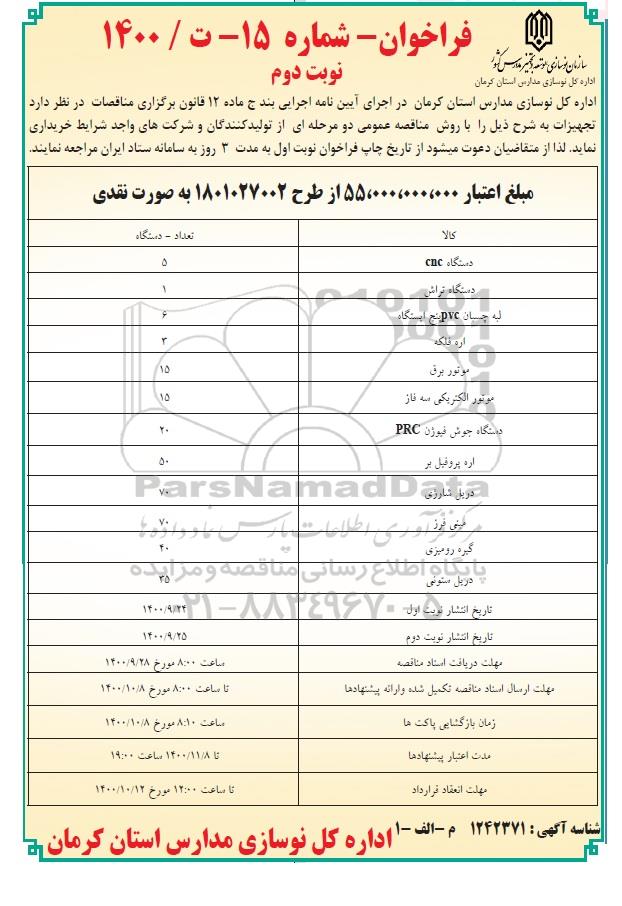 فراخوان- شماره ۱۵- ت / ۱۴۰۰
نوبت دوم
سازمان نوسازی، توسعه و تجهیز مدارس کشور
اداره کل نوسازی مدارس استان کرمان
اداره کل نوسازی مدارس استان کرمان در اجرای آیین نامه اجرایی بند ج ماده ۱۲ قانون برگزاری مناقصات در نظر دارد
تجهیزات به شرح ذیل را با روش مناقصه عمومی دو مرحله ای از تولیدکنندگان و شرکت های واجد شرایط خریداری
نماید. لذا از متقاضیان دعوت میشود از تاریخ چاپ فراخوان نوبت اول به مدت ۳ روز به سامانه ستاد ایران مراجعه نمایند.
مبلغ اعتبار ۵۵,۰۰۰,۰۰۰,۰۰۰ از طرح ۱۸۰۱۰۲۷۰۰۲ به صورت نقدی
کالا تعداد - دستگاه
دستگاه cnc ۵
دستگاه تراش ۱
لبه چسبان pvcپنج ایستگاه ۶
اره فلکه ۳
موتور برق ۱۵
موتور الکتریکی سه فاز ۱۵
دستگاه جوش فیوژن PRC ۲۰
اره پروفیل بر ۵۰
دریل شارژی ۷۰
مینی فرز ۷۰
گیره رومیزی ۴۰
دریل ستونی ۳۵
تاریخ انتشار نوبت اول ۱۴۰۰/۹/۲۴
تاریخ انتشار نوبت دوم ۱۴۰۰/۹/۲۵
مهلت دریافت اسناد مناقصه ساعت ۸:۰۰ مورخ ۱۴۰۰/۹/۲۸
مهلت ارسال اسناد مناقصه تکمیل شده وارائه پیشنهادها تا ساعت ۸:۰۰ مورخ ۱۴۰۰/۱۰/۸
زمان بازگشایی پاکت ها ساعت ۸:۱۰ مورخ ۱۴۰۰/۱۰/۸
مدت اعتبار پیشنهادها تا ۱۴۰۰/۱۱/۸ ساعت ۱۹:۰۰
مهلت انعقاد قرارداد تا ساعت ۱۲:۰۰ مورخ ۱۴۰۰/۱۰/۱۲
ParsNamadData
مرکز فرآوری اطلاعات پارس نماد داده ها
پایگاه اطلاع رسانی مناقصه و مزایده
۰۲۱-۸۸۳۴۹۶۷۰-۵
شناسه آگهی : ۱۲۴۲۳۷۱ م -الف -۱
اداره کل نوسازی مدارس استان کرمان